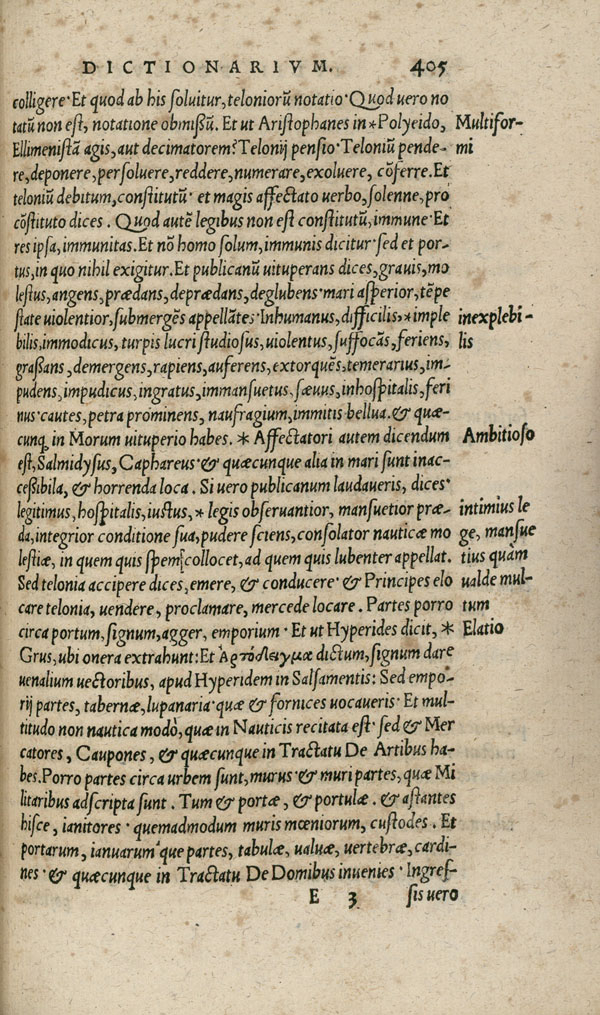 DICTIONARIVM. 405
colligere·Et quod ab his soluitur, teloniorũ notatio·Quod uero no
tatũ non est, notatione obmißũ. Et ut Aristophanes in *Polyeido,
Ellimenistã agis, aut decimatorem? Telonij pensio·Teloniũ pende-
re, deponere, persoluere, reddere, numerare, exoluere, cõferre. Et
teloniũ debitum, constitutũ· et magis affectato uerbo, solenne, pro
cõstituto dices. Quod autẽ legibus non est constitutũ, immune·Et
res ipsa, immunitas. Et nõ homo solum, immunis dicitur·sed et por-
tus, in quo nihil exigitur. Et publicanũ uituperans dices, grauis, mo
lestus, angens, prædans, deprædans, deglubens·mari asperior, tẽpe
state uiolentior, submergẽs appellãtes·Inhumanus, difficilis, *imple
bilis, immodicus, turpis lucri studiosus, uiolentus, suffocãs, feriens,
graßans, demergens, rapiens, auferens, extorquẽs, temerarius, im-
pudens, impudicus, ingratus, immansuetus, sæuus, inhospitalis, feri
nus·cautes, petra prominens, naufragium, immitis bellua. & quæ-
cunq; in Morum uituperio habes. * Affectatori autem dicendum
est, Salmidysus, Caphareus·& quæcunque alia in mari sunt inac-
ceßibila, & horrenda loca. Si uero publicanum laudaueris, dices·
legitimus, hospitalis, iustus, * legis obseruantior, mansuetior præ-
da, integrior conditione sua, pudere sciens, consolator nauticæ mo
lestiæ, in quem quis spem collocet, ad quem quis lubenter appellat.
Sed telonia accipere dices, emere, & conducere·& Principes elo
care telonia, uendere, proclamare, mercede locare. Partes porro
circa portum, signum, agger, emporium·Et ut Hyperides dicit, *
Grus, ubi onera extrahunt: Et dictum, signum dare
uenalium uectoribus, apud Hyperidem in Salsamentis: Sed empo-
rij partes, tabernæ, lupanaria·quæ & fornices uocaueris·Et mul-
titudo non nautica modò, quæ in Nauticis recitata est·sed & Mer
catores, Caupones, & quæcunque in Tractatu De Artibus ha-
bes. Porro partes circa urbem sunt, murus·& muri partes, quæ Mi
litaribus adscripta sunt. Tum & portæ, & portulæ. & astantes
hisce, ianitores·quemadmodum muris mœniorum, custodes. Et
portarum, ianuarum'que partes, tabulæ, ualuæ, uertebræ, cardi-
nes·& quæcunque in Tractatu De Domibus inuenies·Ingres-
E 3 sis uero
Multifor-
mi
inexplebi-
lis
Ambitioso
intimius le
ge, mansue
tius quàm
ualde mul-
tum
Elatio